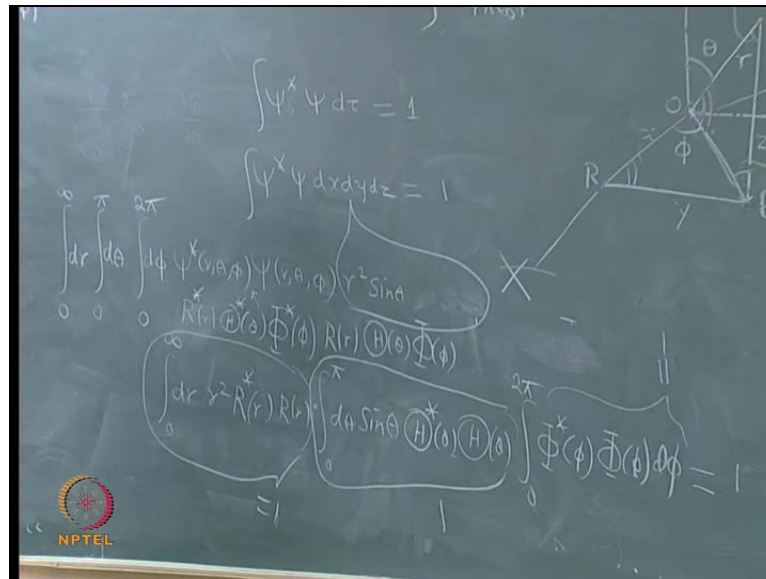 ∫ψ* ψ dτ = 1
∫ψ* ψ dx dy dz = 1
∫₀^∞ dr ∫₀^π dθ ∫₀^2π dϕ ψ*(r,θ,ϕ) ψ(r,θ,ϕ) r² Sinθ
R*(r) Ⓗ*(θ) Φ*(ϕ) R(r) Ⓗ(θ) Φ(ϕ)
∫₀^∞ dr r² R*(r) R(r) · ∫₀^π dθ Sinθ Ⓗ*(θ) Ⓗ(θ) ∫₀^2π Φ*(ϕ) Φ(ϕ) dϕ = 1
=1
1
1
=
θ
r
O
x
ϕ
z
R
y
X
NPTEL